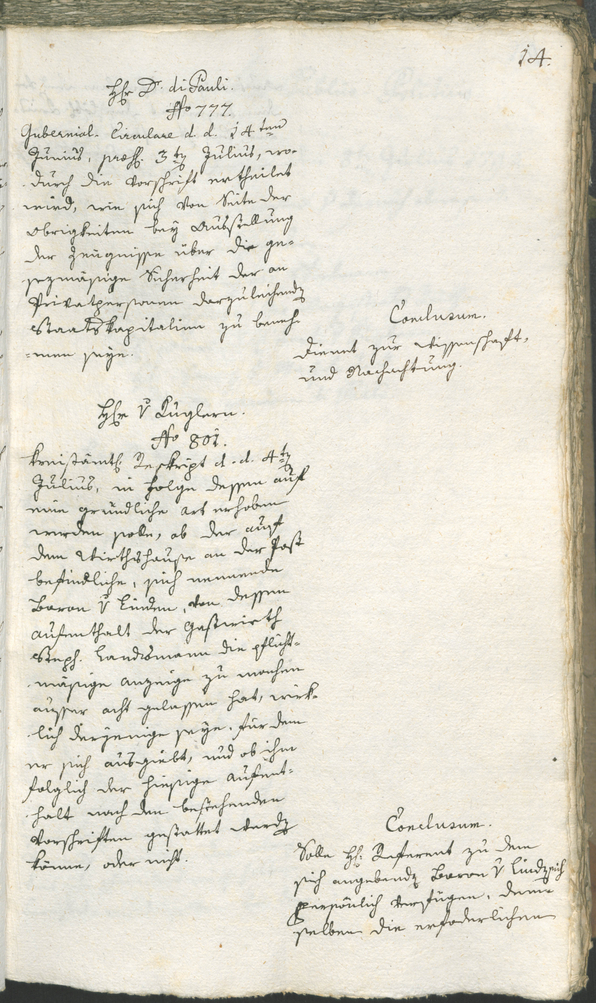 14.
Hr. D. di Pauli.
No 777.
Gubernial-Circulare d. d. 14ten
Junius, praes. 3t Julius, wo-
durch die Vorschrift ertheilet
wird, wie sich von Seite der
Obrigkeiten bey Ausstellung
der Zeugnisse über die ge-
sezmäsige Sicherheit der an
Privatpersonen darzuleihend
Staatskapitalien zu beneh-
men seye.
Conclusum.
Dienet zur Wissenschaft,
und Nachachtung.
Hr. v Kuglern.
No 801.
Kreisämtl. Reskript d. d. 4t
Julius, in Folge dessen auf
eine gründliche Art erhoben
werden solle, ob der auf
dem Wirthshause an der Post
befindliche, sich nennende
Baron v Linden, von dessen
Aufenthalt der Gastwirth
Steph. Landsmann die pflicht-
mäsige Anzeige zu machen
ausser acht gelassen hat, wirk-
lich derjenige seye, für den
er sich ausgiebt, und ob ihm
folglich der hiesige Aufent-
halt nach den bestehenden
Vorschriften gestattet werd
könne, oder nicht.
Conclusum.
Solle H: Referent zu dem
sich angebend Baron v Lind sich
persönlich verfügen, dem-
selben die erforderlichen